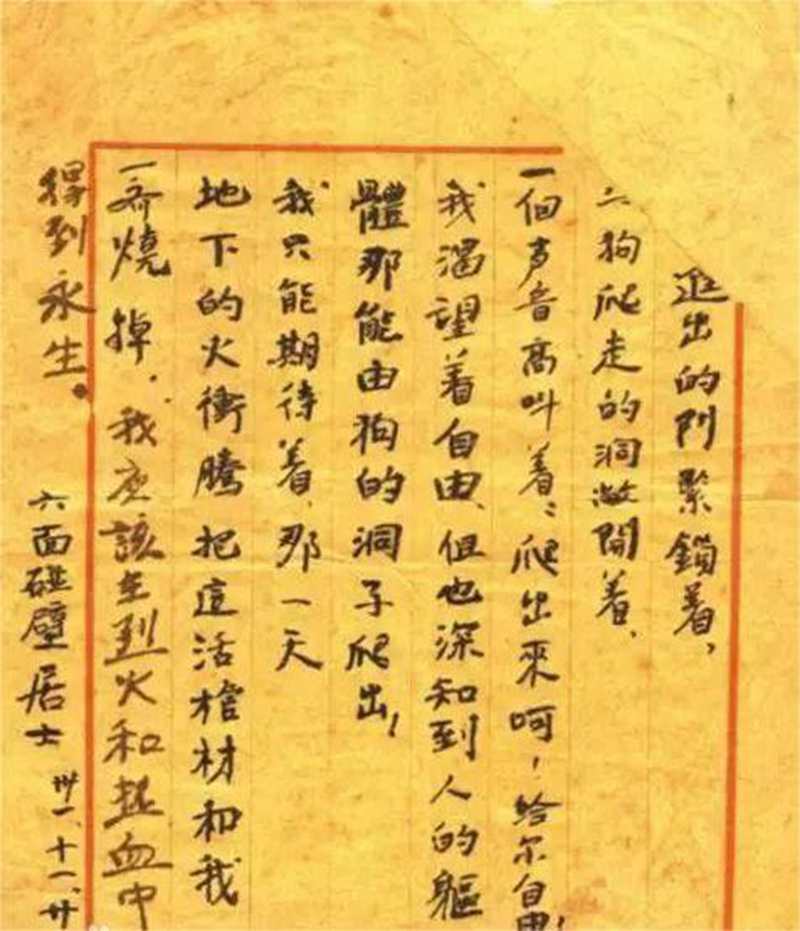 進出的門緊鎖着,
狗爬走的洞敞開着、
一個声音高叫着:爬出來呵!給尔自由!
我渴望着自由、但也深知到人的軀
體那能由狗的洞子爬出!
我只能期待着、那一天
地下的火衝騰把這活棺材和我
一齐燒掉.我应該在到火和热血中
得到永生。
六面碰壁居士 卅一、十一、廿